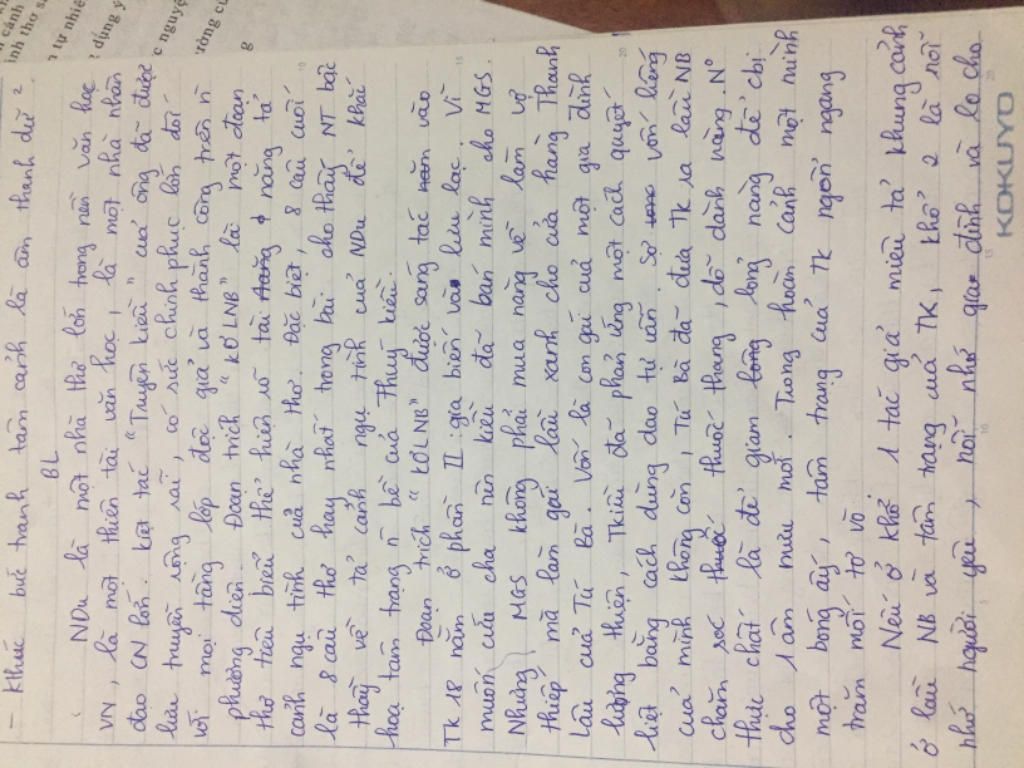 - Khúc bức tranh tâm cảnh là ân thanh dữ 2.
BL
NDu là một nhà thơ lớn trong nền văn học
VN, là một thiên tài văn học, là một nhà nhân
đạo CN lớn. kiệt tác "Truyện kiều" của ông đã được
lưu truyền rộng rãi, có sức chinh phục lớn đối
với mọi tầng lớp độc giả và thành công trên n
phương diện. Đoạn trích "KƠLNB" là một đoạn
thơ tiêu biểu thể hiện rõ tài năng tả
cảnh ngụ tình của nhà thơ. Đặc biệt, 8 câu cuối
là 8 câu thơ hay nhất trong bài cho thấy NT bậc
thầy về tả cảnh ngụ tình của NDu để khắc
hoạ tâm trạng n bề của Thuý kiều.
Đoạn trích "KƠLNB" được sáng tác vào
TK 18 nằm ở phần II: gia biến và lưu lạc. Vì
muốn cứu cha nên kiều đã bán mình cho MGS.
Nhưng MGS không phải mua nàng về làm vợ
thiếp mà làm gái lầu xanh cho cửa hàng Thanh
Lâu của Tú Bà. Vốn là con gái của một gia đình
lương thiện, Tkiều đã phản ứng một cách quyết
liệt bằng cách dùng dao tự vẫn. Sợ vốn liếng
của mình không còn, Tú Bà đã đưa TK ra lầu NB
chăm sóc thuốc thang, dỗ dành nàng. N°
thực chất là để giam lỏng nàng để cbị
cho 1 âm mưu mới. Trong hoàn cảnh một mình
một bóng ấy, tâm trạng của TK ngổn ngang
trăm mối tơ vò.
Nếu ở khổ 1 tác giả miêu tả khung cảnh
ở lầu NB và tâm trạng của TK, khổ 2 là nỗi
nhớ người yêu, nỗi nhớ gia đình và lo cho
KOKUYO